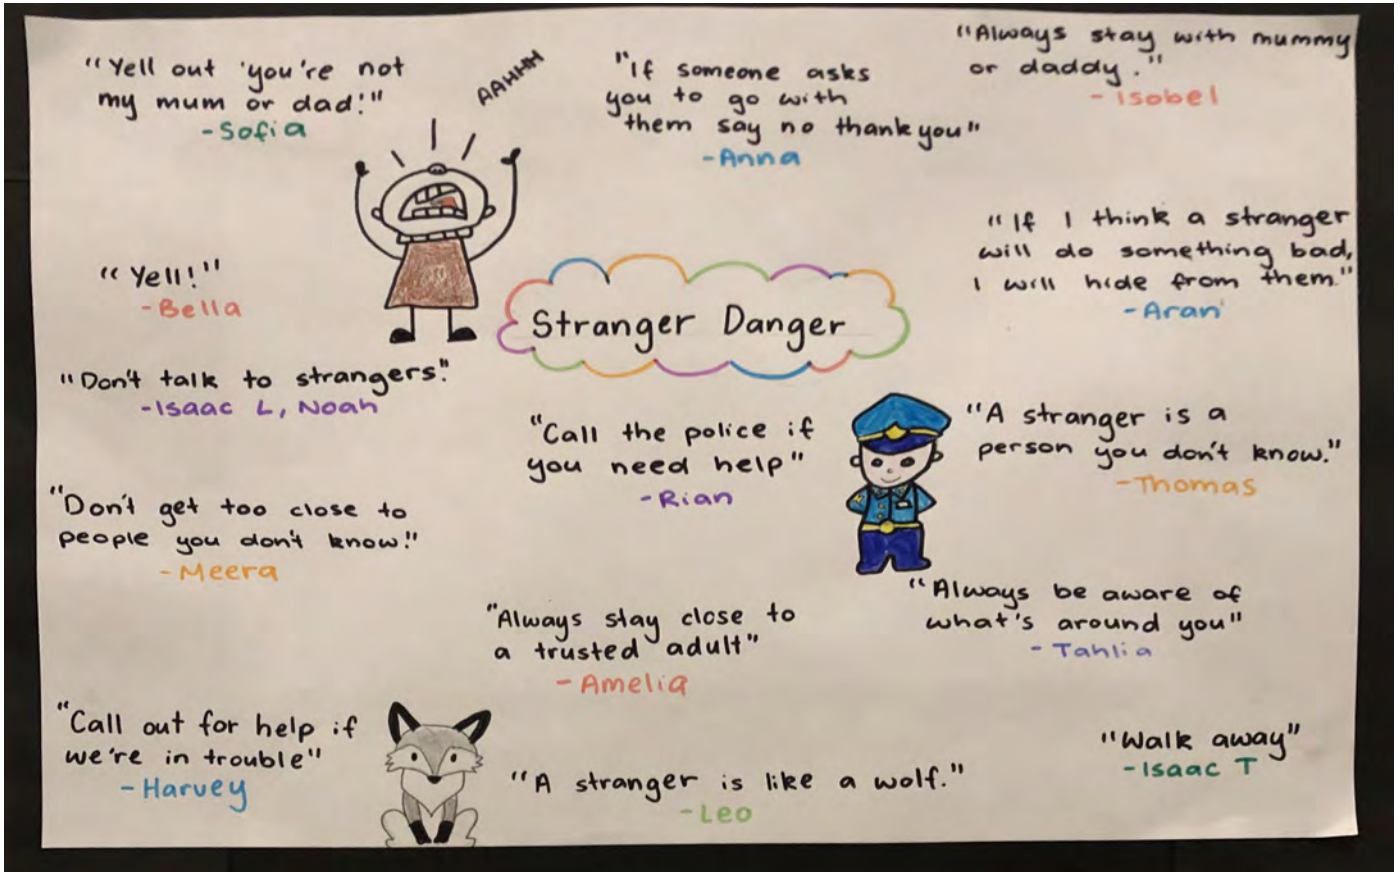 "Yell out 'you're not
my mum or dad!"
-Sofia
AAHHH
"If someone asks
you to go with
them say no thank you"
-Anna
"Always stay with mummy
or daddy."
-Isobel
"Yell!"
-Bella
Stranger Danger
"If I think a stranger
will do something bad,
I will hide from them."
-Aran
"Don't talk to strangers."
-Isaac L, Noah
"Call the police if
you need help"
-Rian
"A stranger is a
person you don't know."
-Thomas
"Don't get too close to
people you don't know!"
-Meera
"Always stay close to
a trusted adult"
-Amelia
"Always be aware of
what's around you"
-Tahlia
"Call out for help if
we're in trouble"
-Harvey
"A stranger is like a wolf."
-Leo
"Walk away"
-Isaac T